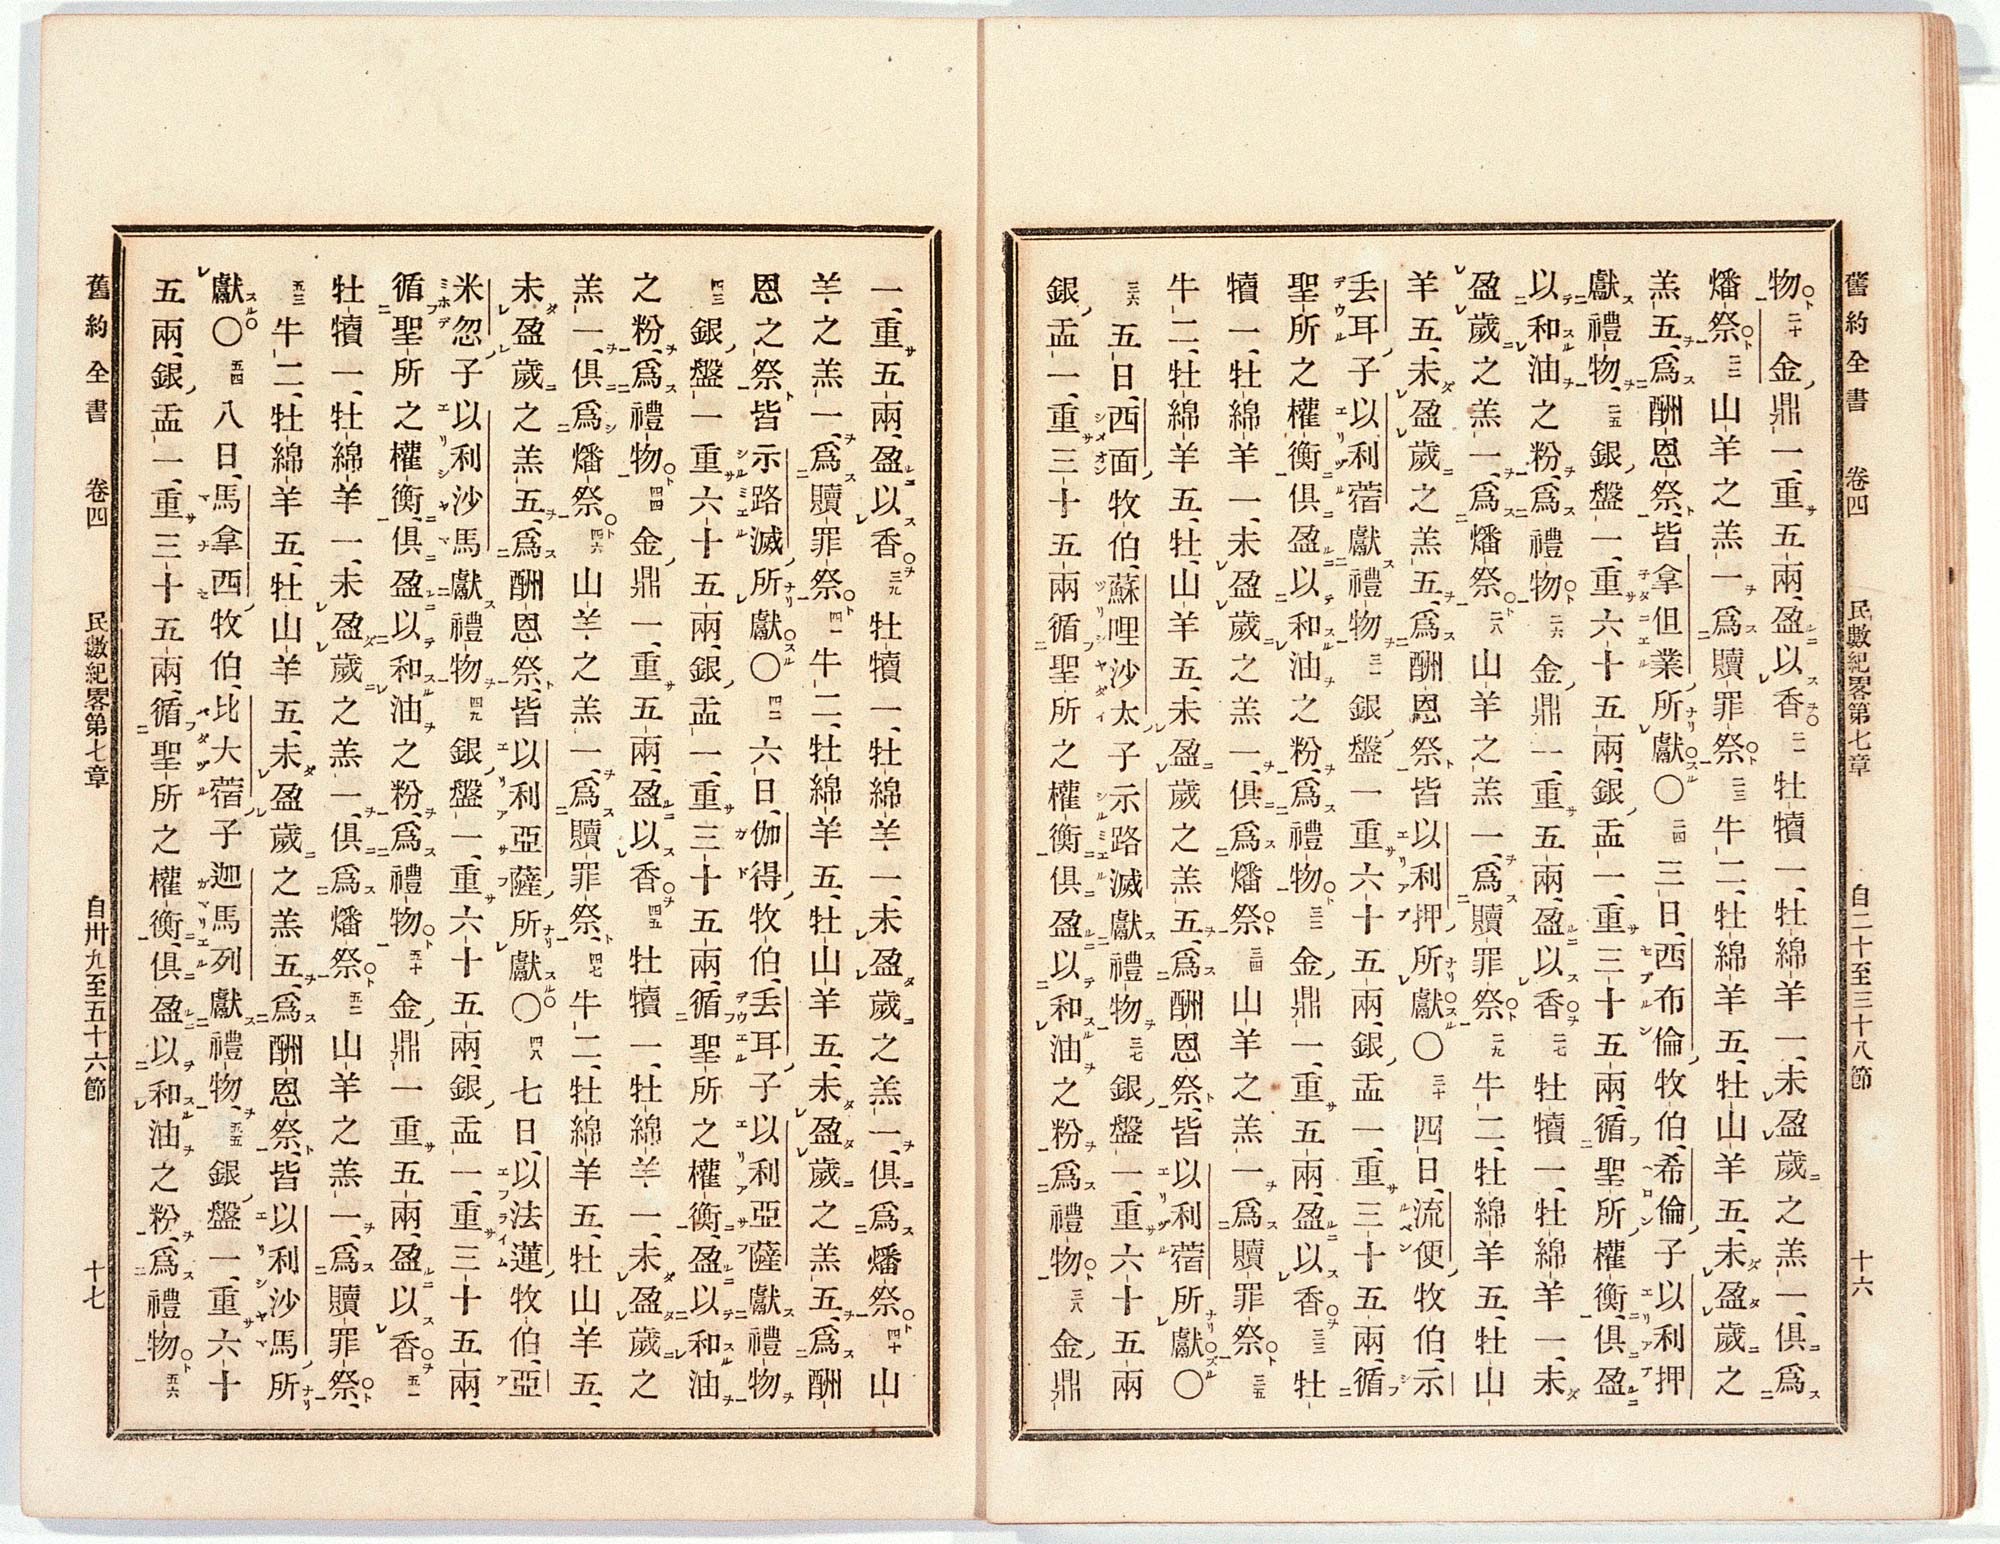 舊約全書 卷四 民數紀畧第七章 自二十至三十八節 十六
物。二十金鼎一、重五兩、盈以香。二一牡犢一、牡綿羊一、未盈歲之羔一、俱爲
燔祭。二二山羊之羔一爲贖罪祭。二三牛二、牡綿羊五、牡山羊五、未盈歲之
羔五、爲酬恩祭、皆拿但業所獻。〇二四三日、西布倫牧伯、希倫子以利押
獻禮物、二五銀盤一、重六十五兩、銀盂一、重三十五兩、循聖所權衡、俱盈
以和油之粉、爲禮物。二六金鼎一、重五兩、盈以香。二七牡犢一、牡綿羊一、未
盈歲之羔一、爲燔祭。二八山羊之羔一、爲贖罪祭。二九牛二、牡綿羊五、牡山
羊五、未盈歲之羔五、爲酬恩祭皆以利押所獻。〇三十四日、流便牧伯、示
丟耳子以利蓿獻禮物三一銀盤一重六十五兩、銀盂一、重三十五兩、循
聖所之權衡俱盈以和油之粉、爲禮物。三二金鼎一、重五兩、盈以香。三三牡
犢一、牡綿羊一、未盈歲之羔一、俱爲燔祭。三四山羊之羔一爲贖罪祭。三五
牛二、牡綿羊五、牡山羊五、未盈歲之羔五、爲酬恩祭、皆以利蓿所獻。〇
三六五日、西面牧伯、蘇哩沙太子示路滅獻禮物三七銀盤一、重六十五兩
銀盂一、重三十五兩循聖所之權衡俱盈以和油之粉爲禮物。三八金鼎
一、重五兩、盈以香。三九牡犢一、牡綿羊一、未盈歲之羔一、俱爲燔祭。四十山
羊之羔一、爲贖罪祭。四一牛二、牡綿羊五、牡山羊五、未盈歲之羔五、爲酬
恩之祭、皆示路滅所獻。〇四二六日、伽得牧伯、丟耳子以利亞薩獻禮物
四三銀盤一重六十五兩、銀盂一、重三十五兩、循聖所之權衡、盈以和油
之粉、爲禮物。四四金鼎一、重五兩、盈以香。四五牡犢一、牡綿羊一、未盈歲之
羔一、俱爲燔祭。四六山羊之羔一、爲贖罪祭、四七牛二、牡綿羊五、牡山羊五、
未盈歲之羔五、爲酬恩祭、皆以利亞薩所獻。〇四八七日、以法蓮牧伯、亞
米忽子以利沙馬獻禮物四九銀盤一、重六十五兩、銀盂一、重三十五兩、
循聖所之權衡、俱盈以和油之粉、爲禮物。五十金鼎一重五兩、盈以香。五一
牡犢一、牡綿羊一、未盈歲之羔一、俱爲燔祭。五二山羊之羔一、爲贖罪祭。
五三牛二、牡綿羊五、牡山羊五、未盈歲之羔五、爲酬恩祭、皆以利沙馬所
獻。〇五四八日、馬拿西牧伯、比大蓿子迦馬列獻禮物、五五銀盤一、重六十
五兩、銀盂一、重三十五兩、循聖所之權衡、俱盈以和油之粉、爲禮物。五六
舊約全書 卷四 民數紀畧第七章 自卅九至五十六節 十七